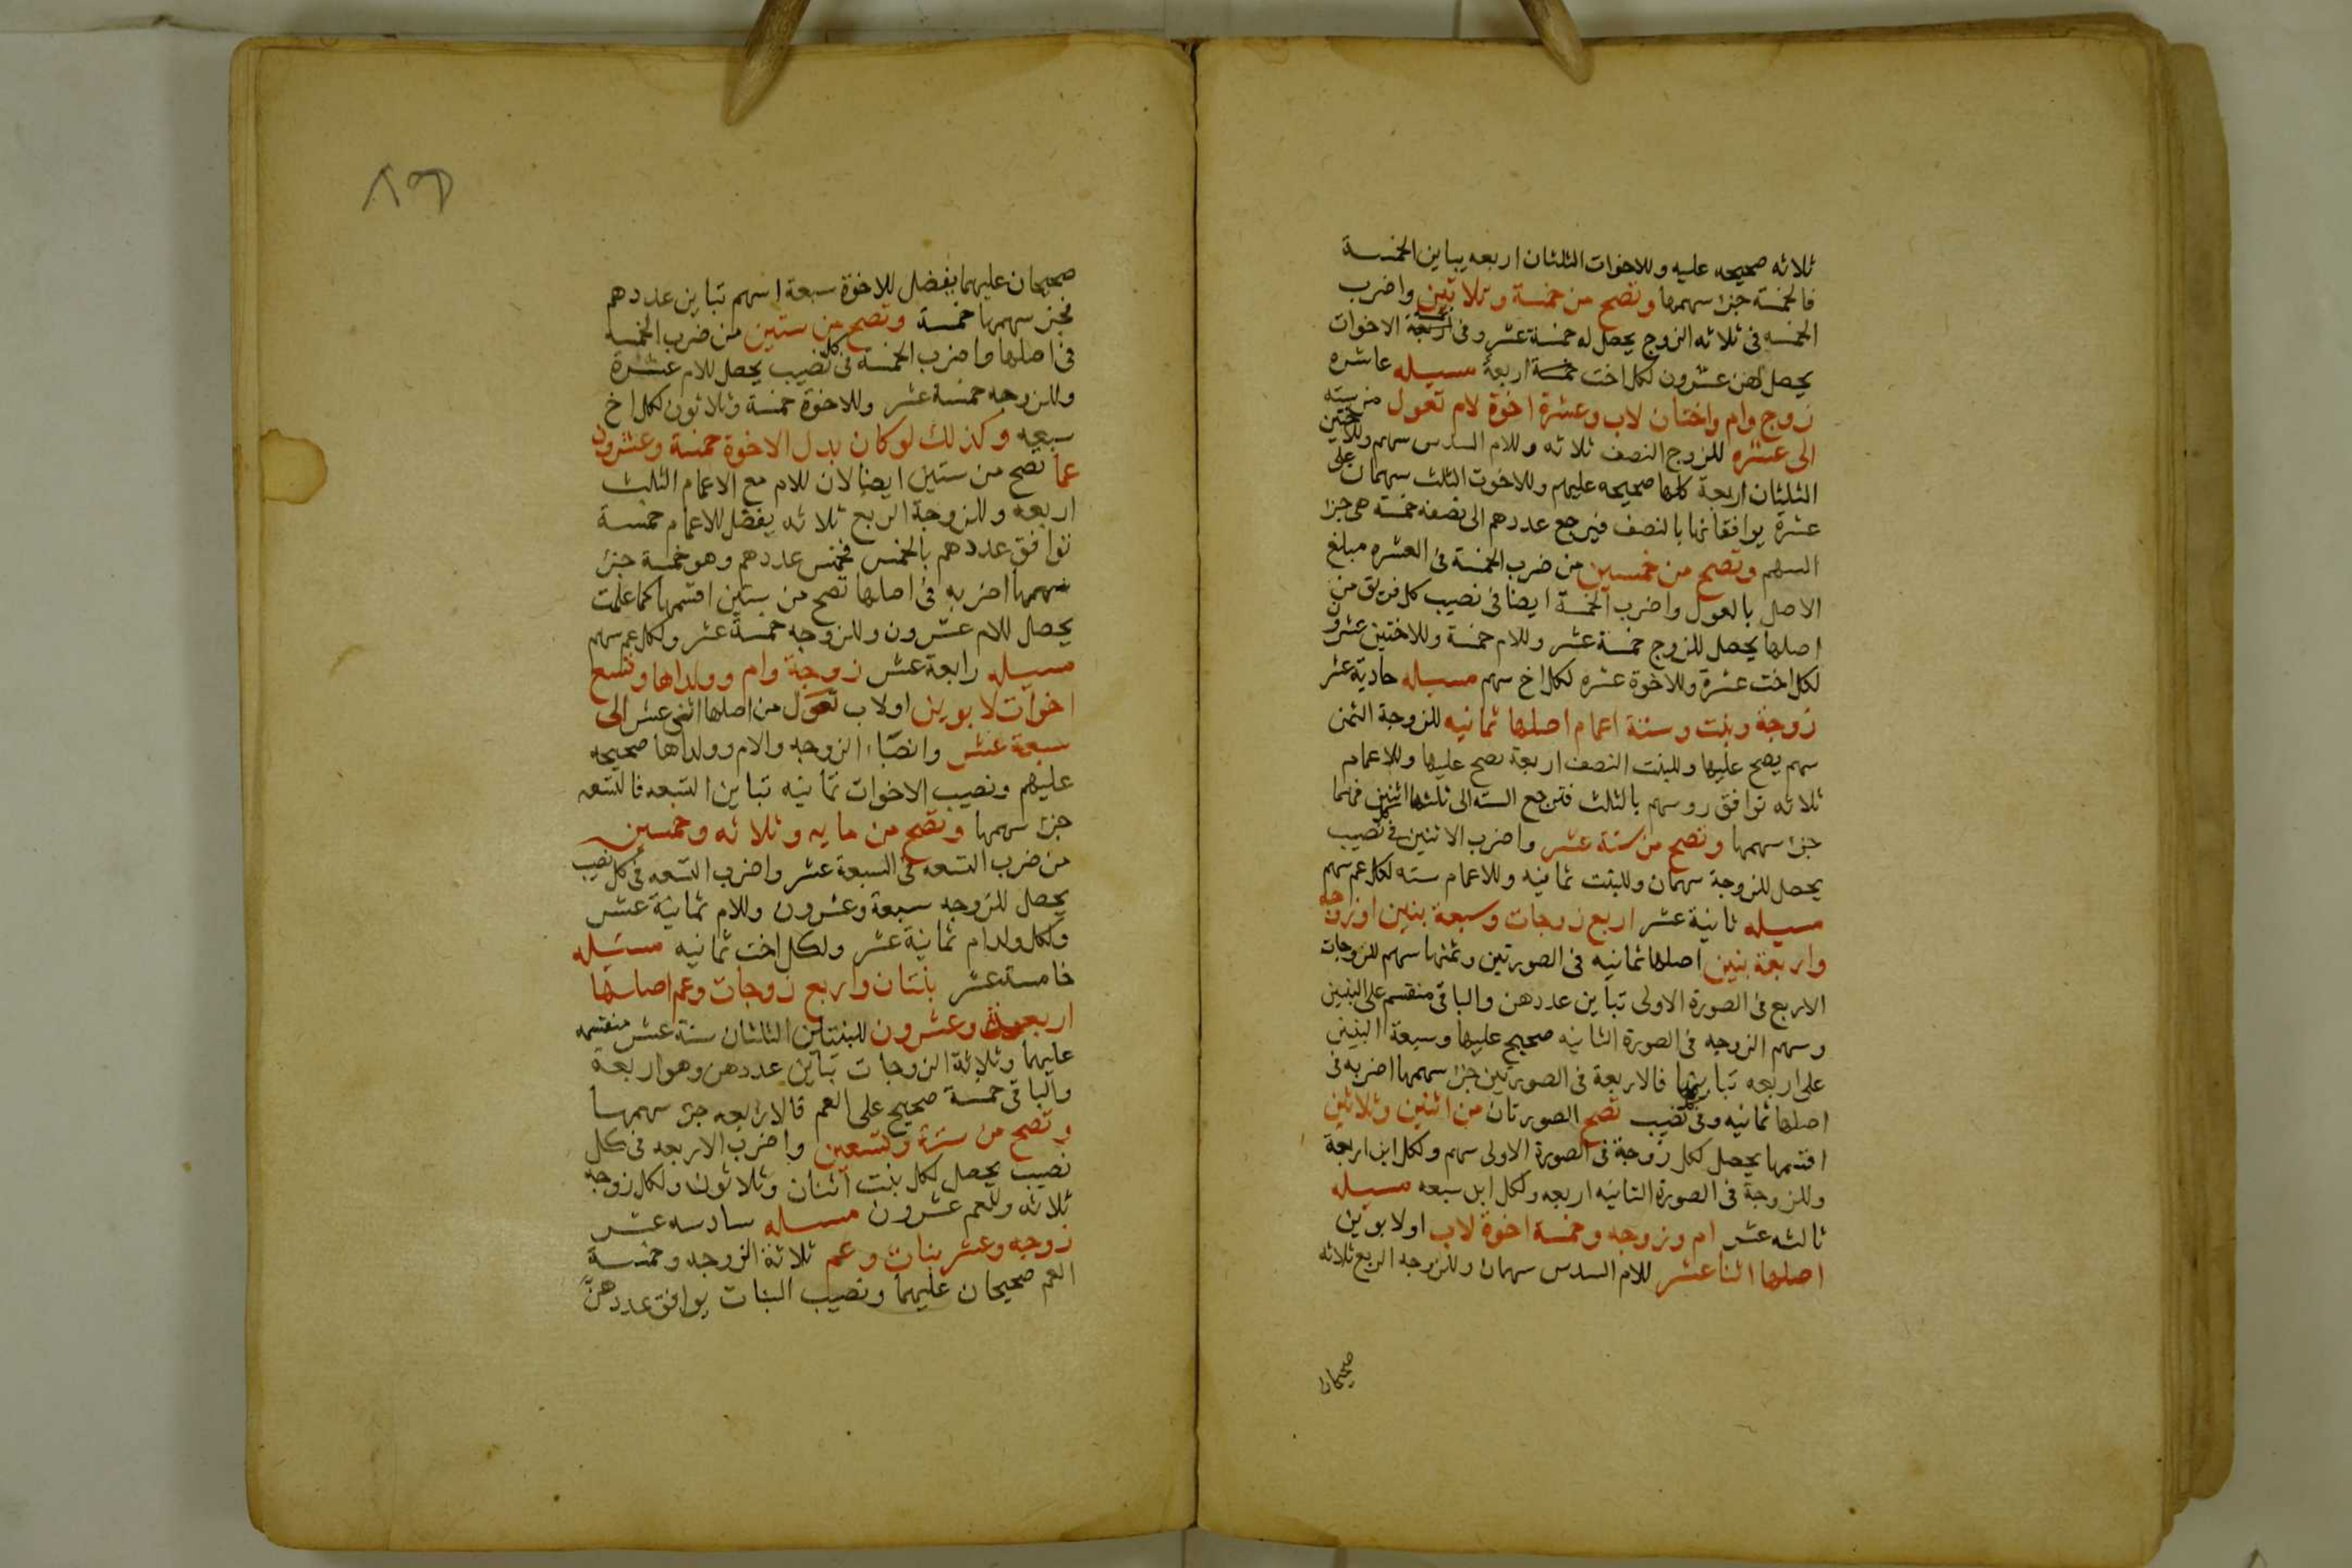 ثلاثه صحيحه عليه وللاخوات الثلثان اربعه يباين الخمسة
فالخمسة جزء سهمها وتصح من خمسة وثلاثين واضرب
الخمسه فى ثلاثه الزوج يحصل له خمسة عشر وفى اربعة الاخوات
يحصل لهن عشرون لكل اخت خمسة اربعة مسيله عاشره
زوج وام واختان لاب وعشرة اخوة لام تعول من سته
الى عشره للزوج النصف ثلاثه وللام السدس سهم وللاختين
الثلثان اربعة كلها صحيحه عليهم وللاخوت الثلث سهمان على
عشرة يوافقانها بالنصف فيرجع عددهم الى نصفه خمسة هى جزا
السهم وتصح من خمسين من ضرب الخمسة فى العشره مبلغ
الاصل بالعول واضرب الخمسة ايضا فى نصيب كل فريق من
اصلها يحصل للزوج خمسة عشر وللام خمسة وللاختين عشرون
لكل اخت عشرة وللاخوة عشره لكل اخ سهم مسيله حادية عشر
زوجة وبنت وستة اعمام اصلها ثمانيه للزوجة الثمن
سهم يصح عليها وللبنت النصف اربعة تصح عليها وللاعمام
ثلاثه توافق روسهم بالثلث فترجع السته الى ثلثها اثنين فهما
جزء سهمها وتصح من ستة عشر واضرب الاثنين فى كل نصيب
يحصل للزوجة سهمان وللبنت ثمانيه وللاعمام سته لكل عم سهم
مسيله ثانية عشر اربع زوجات وسبعة بنين او زوجه
واربعة بنين اصلها ثمانيه فى الصورتين وثمنها سهم للزوجات
الاربع فى الصورة الاولى تباين عددهن والباقى منقسم على البنين
وسهم الزوجه فى الصورة الثانيه صحيح عليها وسبعة البنين
على اربعه تباينها فالاربعة فى الصورتين جزء سهمها اضربه فى
اصلها ثمانيه وفى كل نصيب تصح الصورتان من اثنين وثلاثين
اقسمها يحصل لكل زوجة فى الصورة الاولى سهم ولكل ابن اربعة
وللزوجة فى الصورة الثانيه اربعه ولكل ابن سبعه مسيله
ثالثه عشر ام وزوجه وخمسة اخوة لاب اولابوين
اصلها اثنا عشر للام السدس سهمان وللزوجه الربع ثلاثه
صحيحان
صحيحان عليهما يفضل للاخوة سبعة اسهم تباين عددهم
فجزء سهمها خمسة وتصح من ستين من ضرب الخمسه
فى اصلها واضرب الخمسة فى كل نصيب يحصل للام عشرة
وللزوجه خمسة عشر وللاخوة خمسة وثلاثون لكل اخ
سبعه وكذلك لو كان بدل الاخوة خمسة وعشرون
عما تصح من ستين ايضا لان للام مع الاعمام الثلث
اربعة وللزوجة الربع ثلاثه يفضل للاعمام خمسة
توافق عددهم بالخمس فخمس عددهم وهو خمسة جزء
سهمها اضربه فى اصلها تصح من ستين اقسمها كما علمت
يحصل للام عشرون وللزوجه خمسة عشر ولكل عم سهم
مسيله رابعة عشر زوجة وام وولداها وتسع
اخوات لابوين اولاب تعول من اصلها اثنى عشر الى
سبعة عشر وانصباء الزوجه والام وولداها صحيحه
عليهم ونصيب الاخوات ثمانيه تباين التسعه فالتسعه
جزء سهمها وتصح من مايه وثلاثه وخمسين
من ضرب التسعه فى السبعة عشر واضرب التسعه فى كل نصيب
يحصل للزوجه سبعة وعشرون وللام ثمانية عشر
ولكل ولد ام ثمانية عشر ولكل اخت ثمانيه مسيله
خامسة عشر بنتان واربع زوجات وعم اصلها
اربعة وعشرون للبنتين الثلثان ستة عشر منقسمه
عليهما وثلاثة الزوجات تباين عددهن وهو اربعة
والباقى خمسة صحيح على العم فالاربعه جزء سهمها
وتصح من ستة وتسعين واضرب الاربعه فى كل
نصيب يحصل لكل بنت اثنان وثلاثون ولكل زوجه
ثلاثه وللعم عشرون مسيله سادسه عشر
زوجه وعشر بنات وعم ثلاثة الزوجه وخمسة
العم صحيحان عليهما ونصيب البنات يوافق عددهن